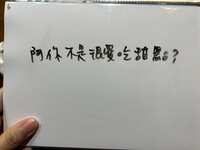 阿你不是很愛吃甜點?